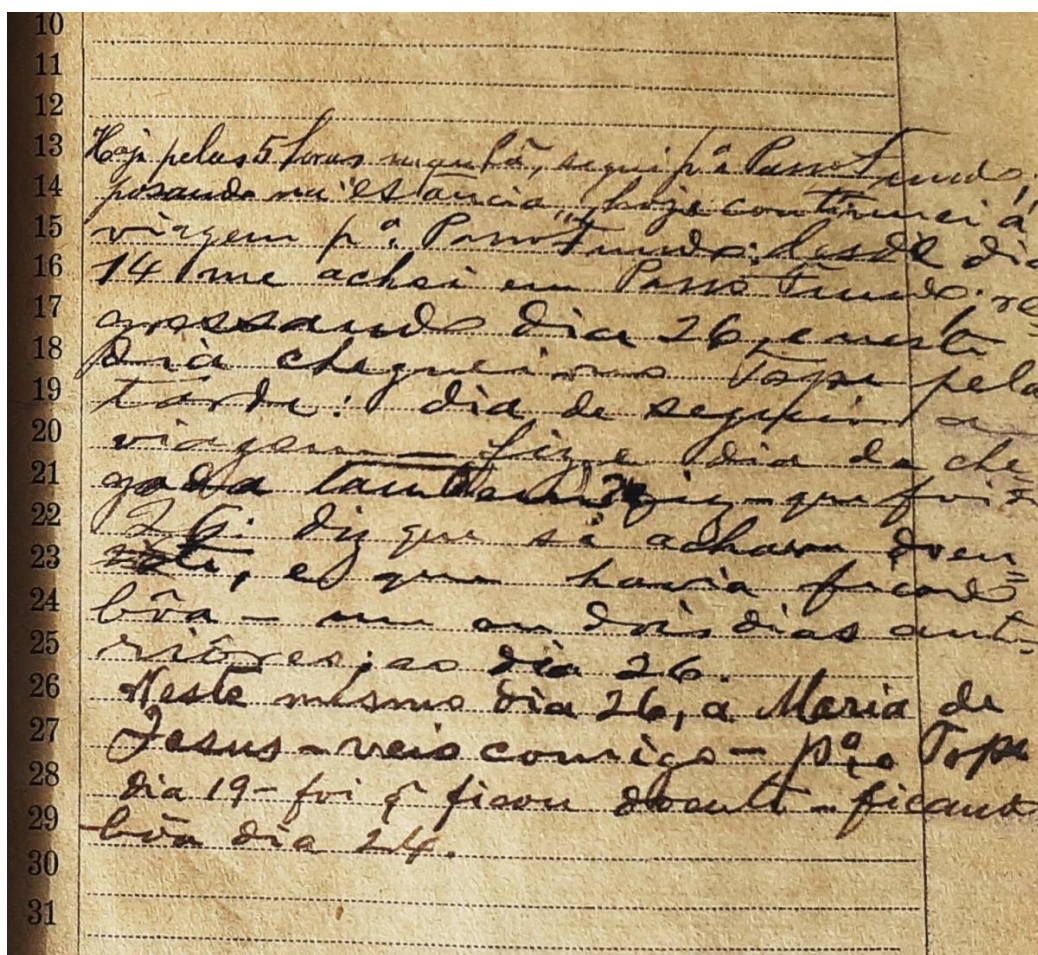 10
11
12
13 Hoje pelas 5 horas manhã, segui pª Passo Fundo,
14 posando na "estancia", hoje continuei á
15 viagem pª. Passo Fundo: desde dia
16 14 me achei em Passo Fundo. re
17 gressando dia 26, e neste
18 dia cheguei no Tope pela
19 tarde: dia de seguir a
20 viagem — fiz e dia da che
21 gada tambem fiz — que foi a
22 26. diz que se achava doen
23 te, e que havia ficado
24 bôa — um ou dois dias ant-
25 riôres; ao dia 26.
26 Neste mesmo dia 26, a Maria de
27 Jesus — veio comigo — pª. o Tope
28 dia 19 — foi q̃ ficou doente — ficand
29 bôa dia 24.
30
31